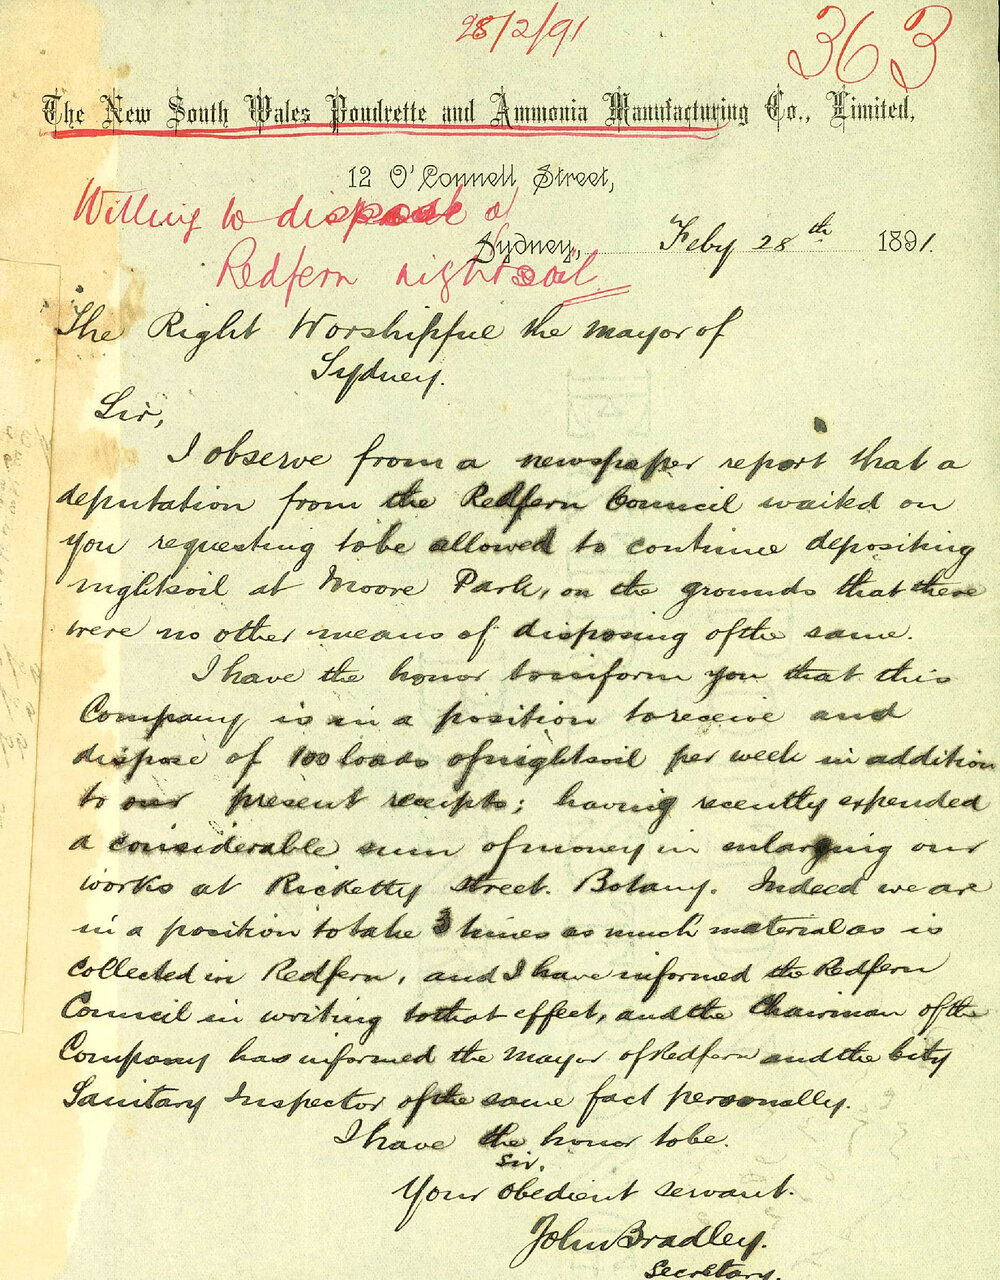 28/2/91
363
The New South Wales Poudrette and Ammonia Manufacturing Co., Limited,
12 O'Connell Street,
Willing to dispose of
Sydney, Feby 28th 1891.
Redfern nightsoil
The Right Worshipful the Mayor of
Sydney.
Sir,
I observe from a newspaper report that a
deputation from the Redfern Council waited on
you requesting to be allowed to continue depositing
nightsoil at Moore Park, on the grounds that there
were no other means of disposing of the same.
I have the honor to inform you that this
Company is in a position to receive and
dispose of 100 loads of nightsoil per week in addition
to our present receipts; having recently expended
a considerable sum of money in enlarging our
works at Ricketty Street. Botany. Indeed we are
in a position to take 3 times as much material as is
collected in Redfern, and I have informed the Redfern
Council in writing to that effect, and the Chairman of the
Company has informed the Mayor of Redfern and the City
Sanitary Inspector of the same fact personally.
I have the honor to be.
Sir,
Your obedient servant.
John Bradley.
Secretary.